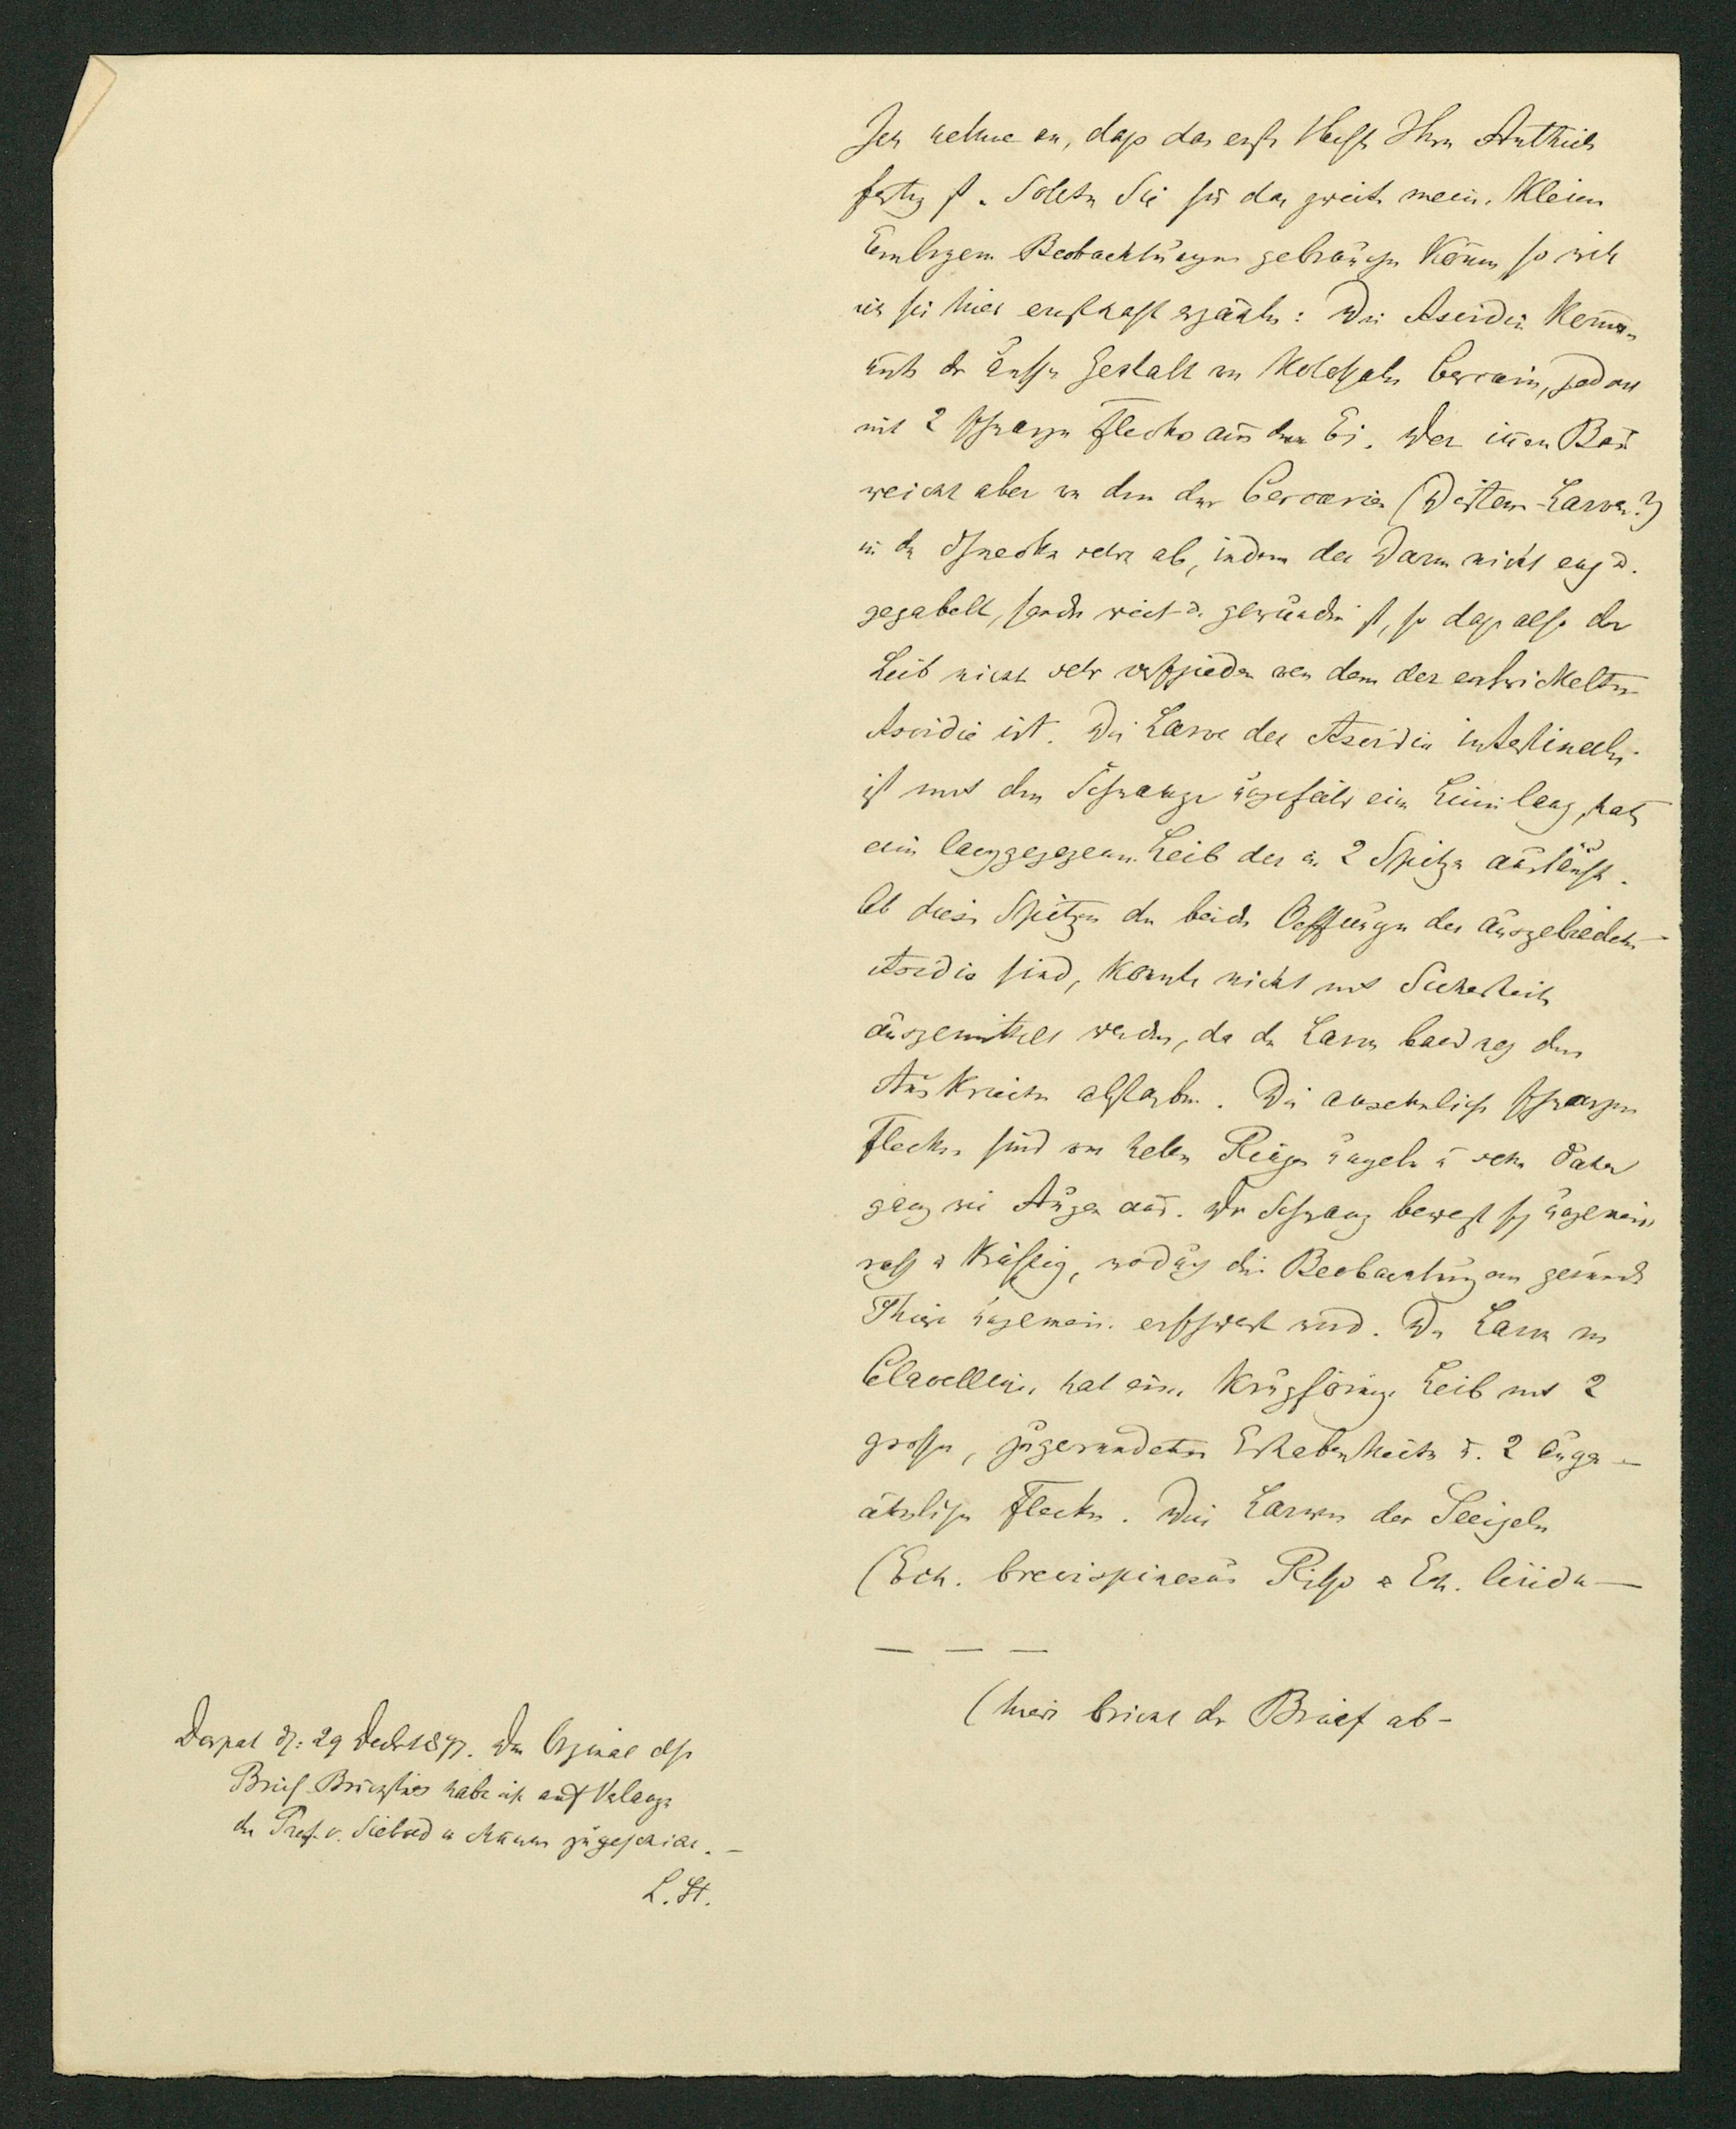 Ich nehme an, daß das erste Heft Ihrer Anthrich
fertig ist. Sollten Sie für das zweite meine kleinen
Beobachtungen gebrauchen können so will
ich sie hier ernsthaft erzählen: Die Ascidien kommen
unter der äußern Gestalt von kolossalen Cercarien, jedoch
mit 2 schwarzen Flecken aus dem Ei. Der innere Bau
weicht aber von dem der Cercarien (Distom-Larven?)
in den Schnecken sehr ab, indem der Darm nicht eng u.
gegabelt, sondern weit u. gewunden ist, so daß also der
Leib nicht sehr verschieden von dem der entwickelten
Ascidie ist. Die Larve der Ascidia intestinalis
ist mit dem Schwanze ungefähr eine Linie lang, hat
einen langgezogenen Leib der in 2 Spitzen ausläuft.
Ob diese Spitzen die beiden Oeffnungen der ausgebildeten
Ascidie sind, konnte nicht mit Sicherheit
ausgemittelt werden, da die Larven bald nach dem
Auskriechen abstarben. Die ansehnlichen schwarzen
Flecken sind von hellen Ringen umgeben u sehen daher
ganz wie Augen aus. Der Schwanz bewegt sich ungemein
rasch u kräftig, wodurch die Beobachtung am gesunden
Thiere ungemein erschwert wird. Die Larve von
Clavellina hat einen krugförmigen Leib mit 2
großen, zugerundeten Erhabenheiten u. 2 augen-
ähnlichen Flecken. Die Larven der Seeigeln
(Ech. brevispinosus Risso u Ech. lividu—
— — —
(hier bricht der Brief ab-
Dorpat d: 29 Decbr 1877. Das Original dieses
Brief-Bruchstückes habe ich auf Verlangen
dem Prof. v. Siebold in München zugeschickt. —
L. St.